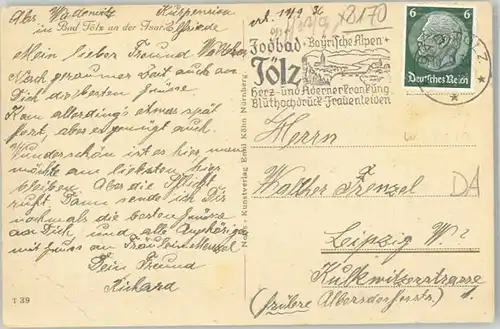 Abs. Wadewitz Kurpension
in Bad Tölz an der Isar. Elfriede
Mein lieber Freund Walther
Nach geraumer Zeit auch an
Dich die besten Grüsse
Kam allerdings etwas spät
fort, aber es genügt auch.
Wunderschön ist es hier man
möchte am liebsten hier
bleiben. Aber die Pflicht
ruft. Dann sende ich Dir
nochmals die besten Grüsse
an Dich, und alle Angehörige
mit Gruss an Fräulein Menzel
Dein Freund
Richard
T 39
Kunstverlag Emil Köhn Nürnberg
erh. 14/9 36
x2170
Jodbad Bayrische Alpen
Tölz
Herz- und Adernerkrankung
Blüthochdruck-Frauenleiden
6 6
Deutsches Reich
Herrn
Walther Frenzel
DA
Leipzig W.
Kulkwitzerstrasse
(frühere Albersdorferstr.)